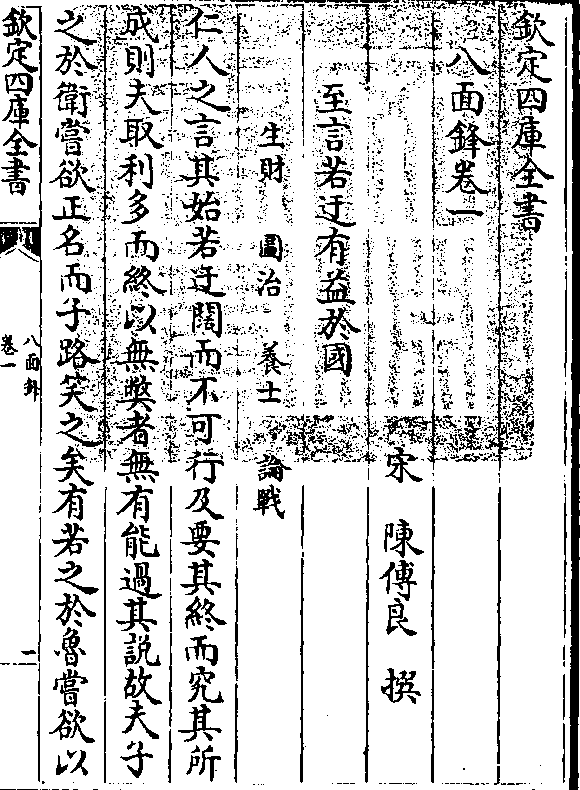 欽定四庫全書
八面鋒卷一
宋 陳傅良 撰
至言若迂有益於國
生財 圖治 養士 論戰
仁人之言其始若迂闊而不可行及要其終而究其所
成則夫取利多而終以無弊者無有能過其說故夫子
之於衛嘗欲正名而子路笑之矣有若之於魯嘗欲以
欽定四庫全書
八面鋒
卷一
一